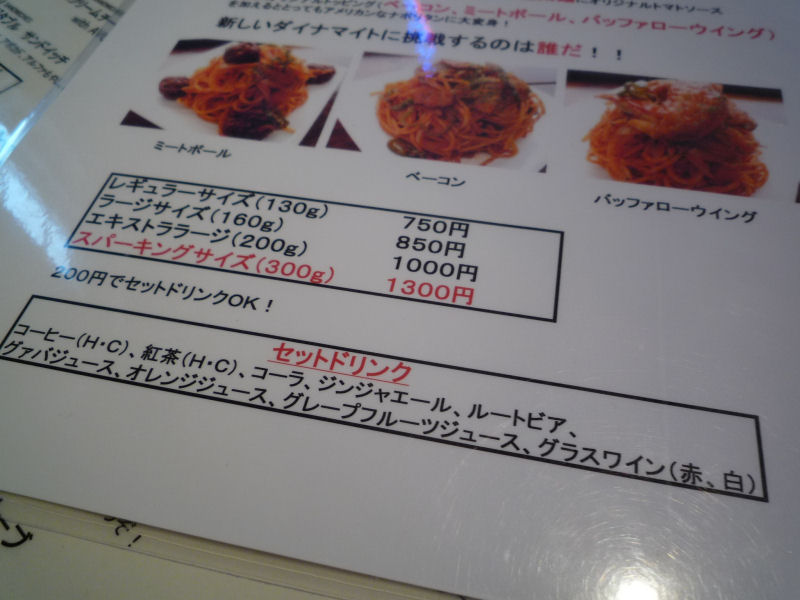 にオリジナルトマトソース
トッピング(ベーコン、ミートボール、バッファローウイング)
を加えるとってもアメリカンなナポリタンに大変身！
新しいダイナマイトに挑戦するのは誰だ！！
ミートボール
ベーコン
バッファローウイング
レギュラーサイズ(130g) 750円
ラージサイズ(160g) 850円
エキストララージ(200g) 1000円
スパーキングサイズ(300g) 1300円
200円でセットドリンクOK！
セットドリンク
コーヒー(H・C)、紅茶(H・C)、コーラ、ジンジャエール、ルートビア、
グァバジュース、オレンジジュース、グレープフルーツジュース、グラスワイン(赤、白)
サンドイッチ